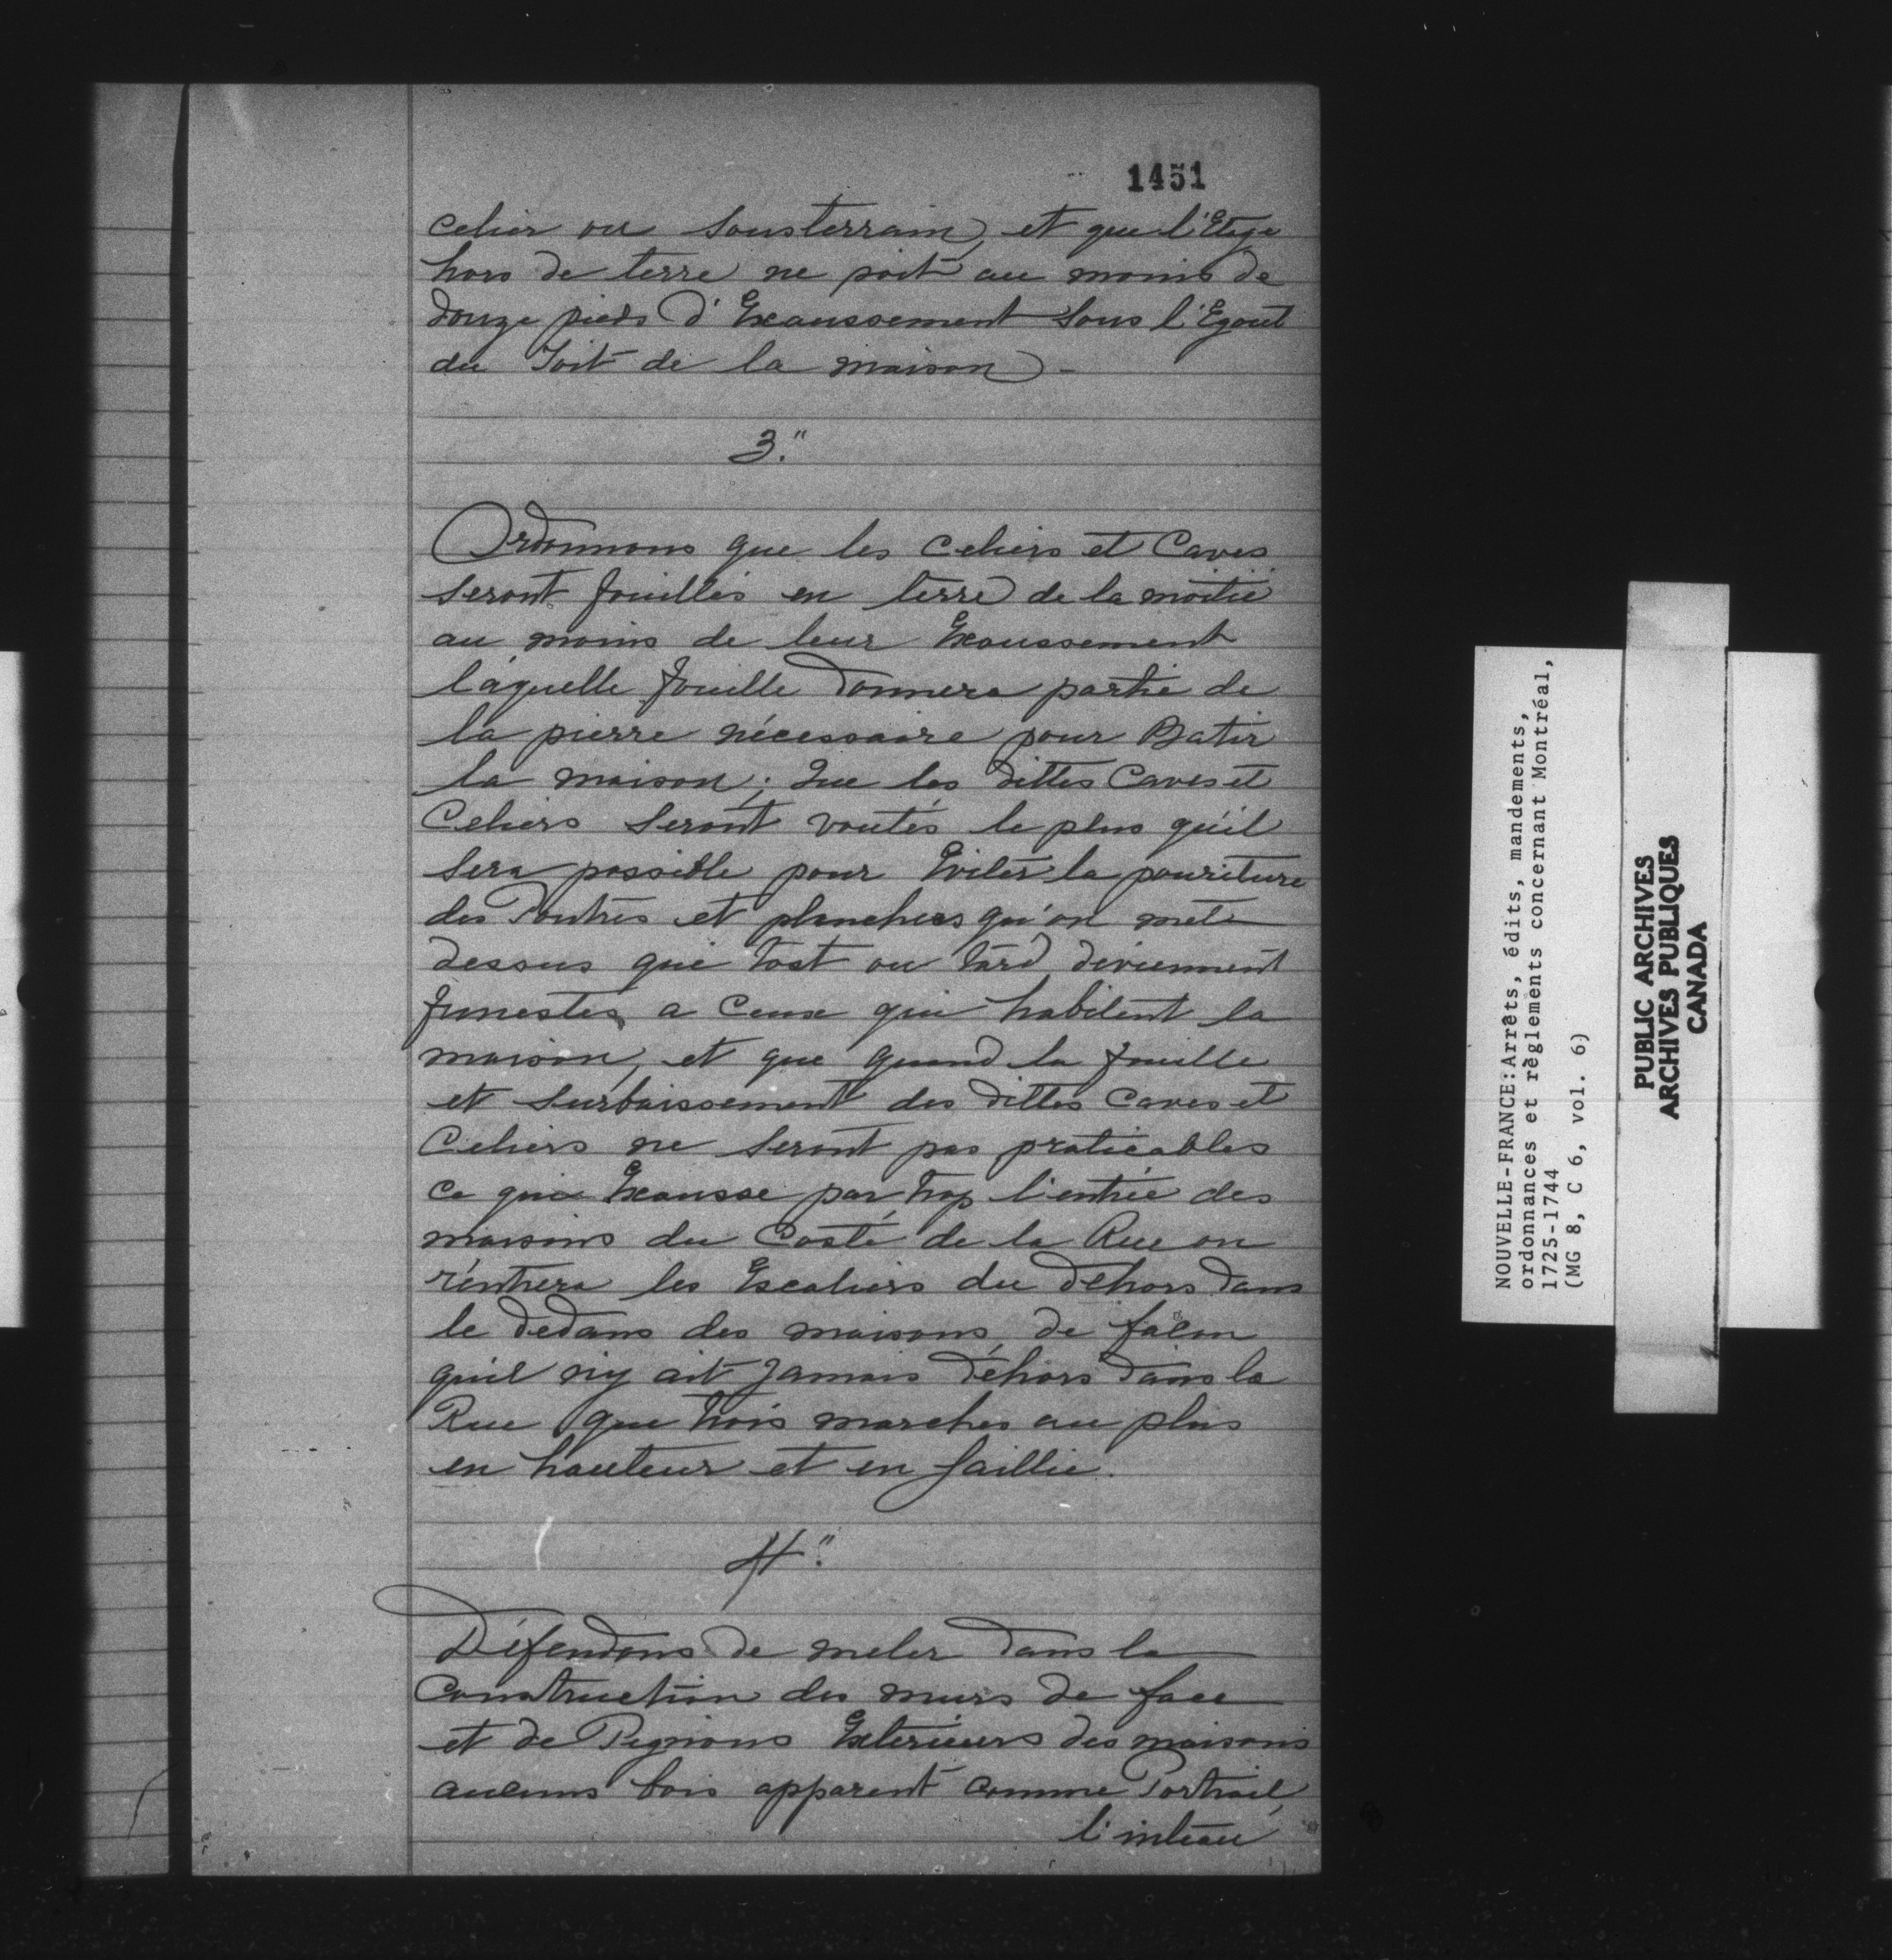 1451
celier ou Sousterrain, et que l'Etage
hors de terre ne soit au moins de
douze pieds d'Exaussement Sous l'Egout
du Toit de la maison -
3.°
Ordonnons que les Celiers et Caves
Seront fouillés en terre de la moitié
au moins de leur Exaussement
laquelle fouille donnera partie de
la pierre nécessaire pour Batir
la maison; Que les dittes Caves et
Celiers Seront voutés le plus qu'il
Sera possible pour Eviter la pouriture
des Poutres et planchers qu'on met
dessus qui tost ou tard deviennent
funestes a Ceux qui habitent la
maison, et que quand la fouille
et Surbaissement des dittes Caves et
Celiers ne Seront pas praticables
Ce qui Exausse par trop l'entrée des
maisons du Costé de la Rue on
rentrera les Escaliers du dehors dans
le dedans des maisons, de façon
qu'il n'y ait Jamais dehors dans la
Rue que trois marches au plus
en hauteur et en Saillie.
4.°
Défendons de meler dans la
Construction des murs de face
et de Pignons Exterieurs des maisons
aucuns bois apparent comme Portrail,
linteau
NOUVELLE-FRANCE: Arrêts, édits, mandements,
ordonnances et règlements concernant Montréal,
1725-1744
(MG 8, C 6, vol. 6)
PUBLIC ARCHIVES
ARCHIVES PUBLIQUES
CANADA